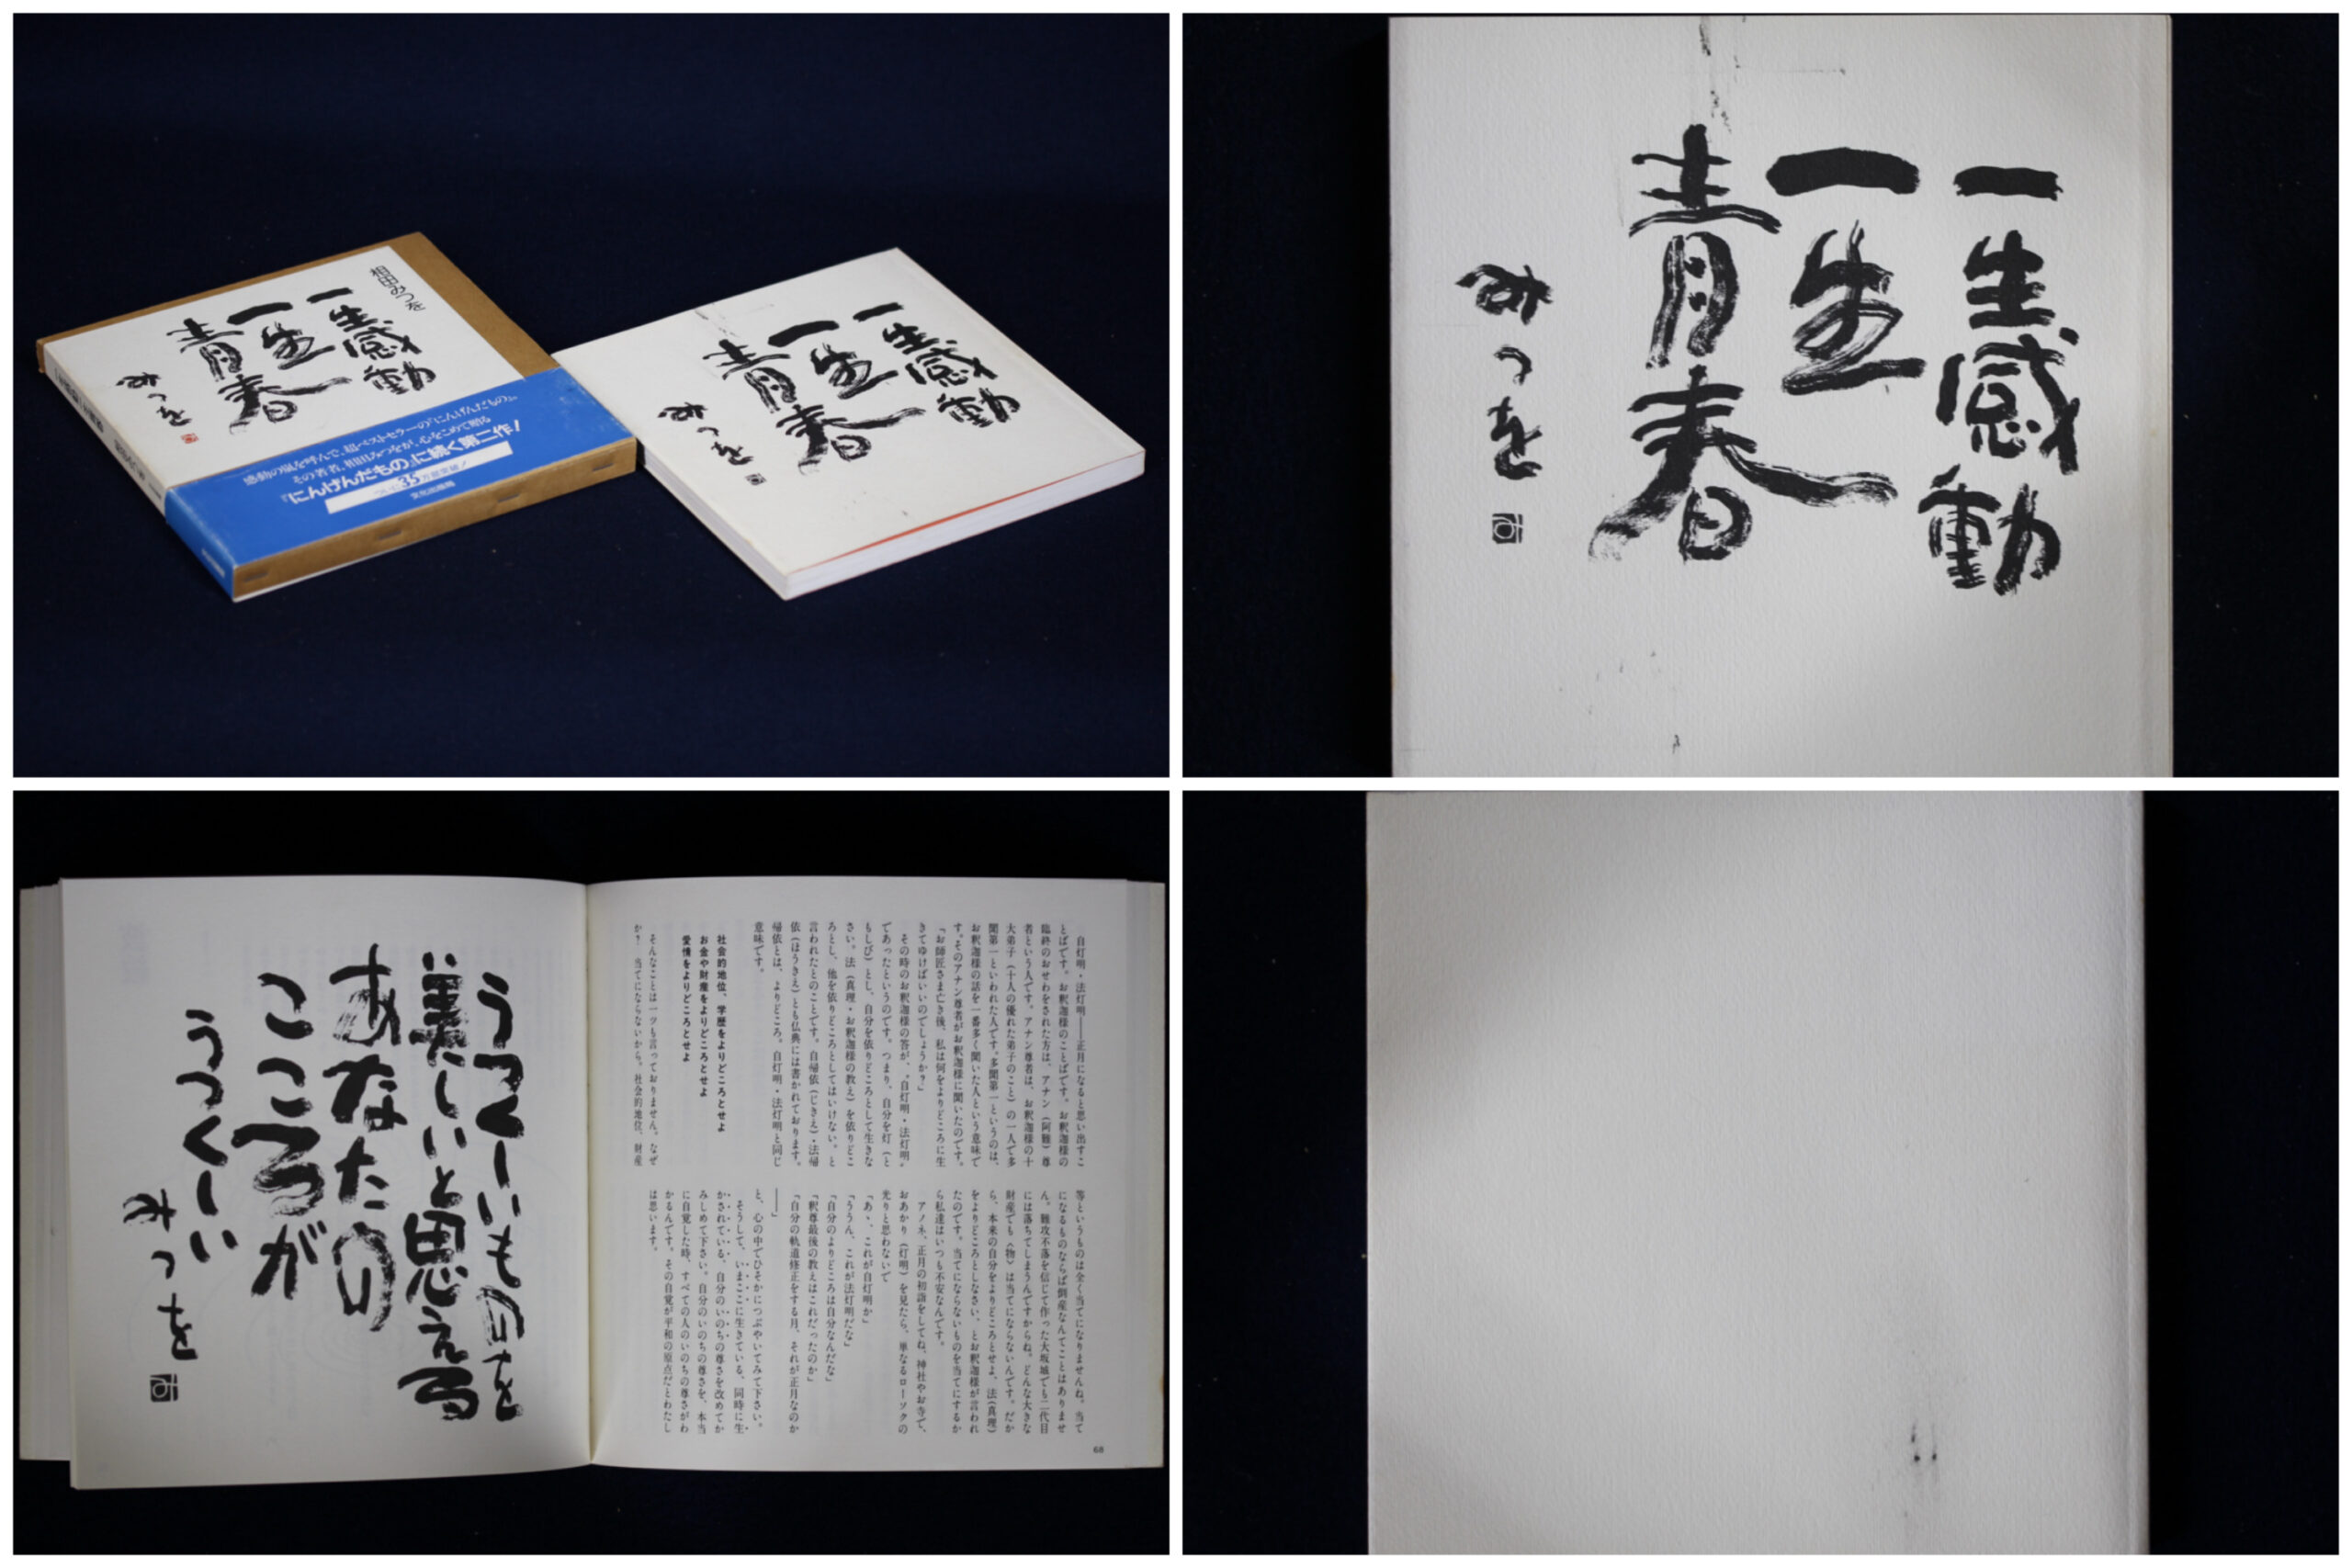 相田みつを
一生感動
一生
青春
みつを
感動の嵐を呼んで、超ベストセラーの『にんげんだもの』。
その著者、相田みつをが、心をこめて贈る
『にんげんだもの』に続く第二作!
35
文化出版局
一生感動
一生
青春
みつを
一生感動
一生
青春
みつを
み
自灯明・法灯明――正月になると思い出すこ
とばです。お釈迦様のことばです。お釈迦様の
臨終のおせわをされた方は、アナン(阿難)尊
者という人です。アナン尊者は、お釈迦様の十
大弟子(十人の優れた弟子のこと)の一人で多
聞第一といわれた人です。多聞第一というのは、
お釈迦様の話を一番多く聞いた人という意味で
す。そのアナン尊者がお釈迦様に聞いたのです。
「お師匠さま亡き後、私は何をよりどころに生
きてゆけばいいのでしょうか?」
その時のお釈迦様の答が、〝自灯明・法灯明〟
であったというのです。つまり、自分を灯(と
もしび)とし、自分を依りどころとして生きな
さい。法(真理・お釈迦様の教え)を依りどこ
ろとし、他を依りどころとしてはいけない。と
言われたとのことです。自帰依(じきえ)・法帰
依(ほうきえ)とも仏典には書かれております。
帰依とは、よりどころ。自灯明・法灯明と同じ
意味です。
社会的地位、学歴をよりどころとせよ
お金や財産をよりどころとせよ
愛情をよりどころとせよ
そんなことは一ツも言っておりません。なぜ
か? 当てにならないから。社会的地位、財産
等というものは全く当てになりませんね。当て
になるものならば倒産なんてことはありませ
ん。難攻不落を信じて作った大坂城でも二代目
には落ちてしまうんですからね。どんな大きな
財産でも〈物〉は当てにならないんです。だか
ら、本来の自分をよりどころとせよ、法(真理)
をよりどころとしなさい、とお釈迦様が言われ
たのです。当てにならないものを当てにするか
ら私達はいつも不安なんです。
アノネ、正月の初詣をしてね、神社やお寺で、
おあかり(灯明)を見たら、単なるローソクの
光りと思わないで
「あゝ、これが自灯明か」
「ううん、これが法灯明だな」
「自分のよりどころは自分なんだな」
「釈尊最後の教えはこれだったのか」
「自分の軌道修正をする月、それが正月なのか
――」
と、心の中でひそかにつぶやいてみて下さい。
そうして、いまここに生きている、同時に生
かされている、自分のいのちの尊さを改めてか
みしめて下さい。自分のいのちの尊さを、本当
に自覚した時、すべての人のいのちの尊さがわ
かるんです。その自覚が平和の原点だとわたし
は思います。
68
うつくしいものを
美しいと思える
あなたの
こころが
うつくしい
みつを
み